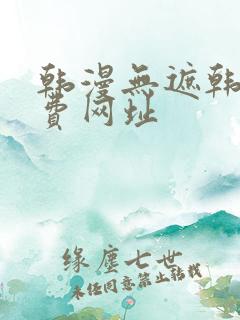 韩漫無遮韩
費网址
缘塵七世
未经同意禁止转载